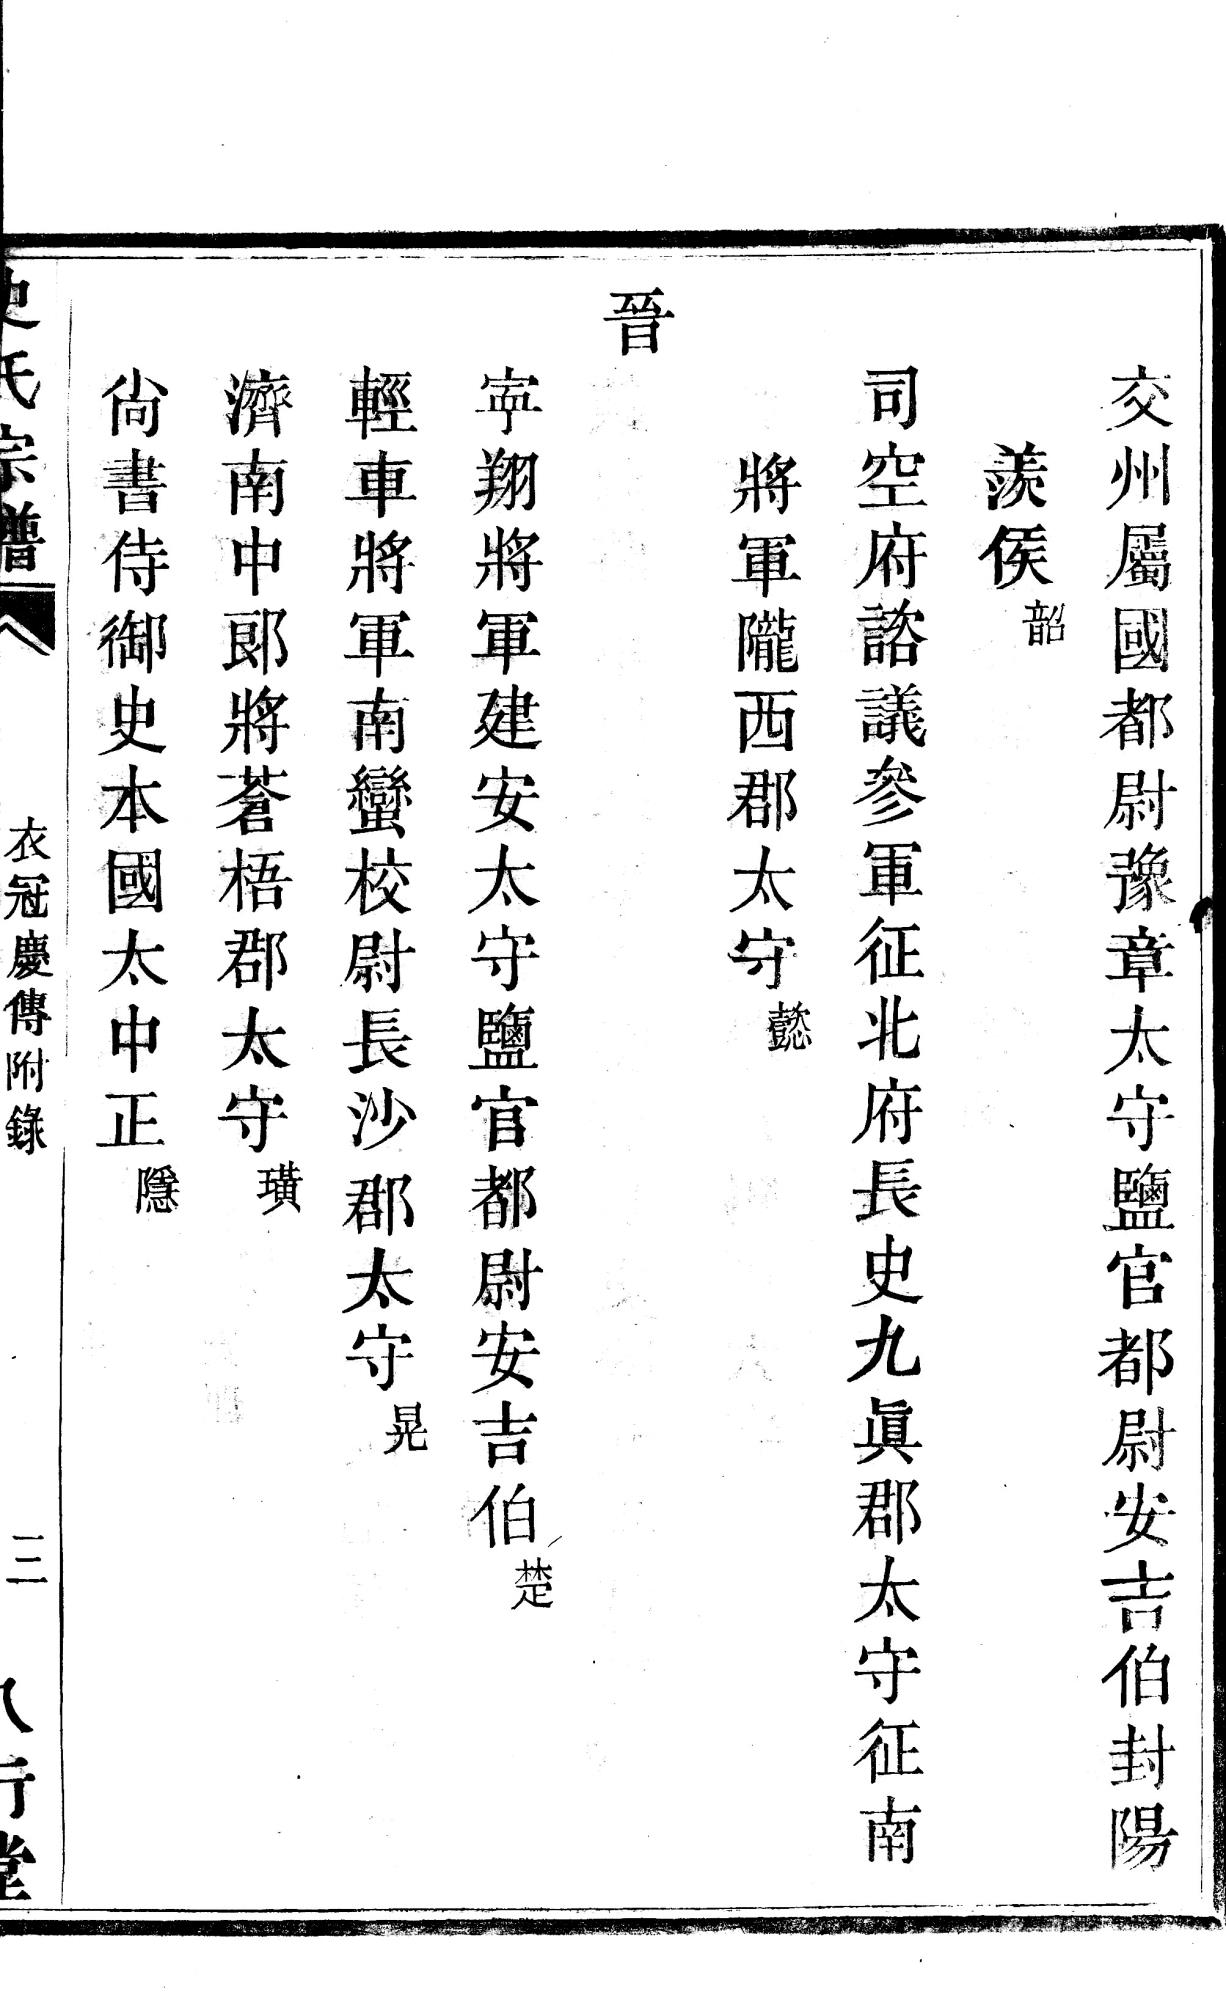 交州屬國都尉豫章太守鹽官都尉安吉伯封陽
羨侯韶
司空府諮議參軍征北府長史九眞郡太守征南
將軍隴西郡太守懿
晉
寕翔將軍建安太守鹽官都尉安吉伯楚
輕車將軍南蠻校尉長沙郡太守晃
濟南中郎將蒼梧郡太守璜
尙書侍御史本國太中正隱
史氏宗譜
衣冠慶傳附錄
三
八行堂